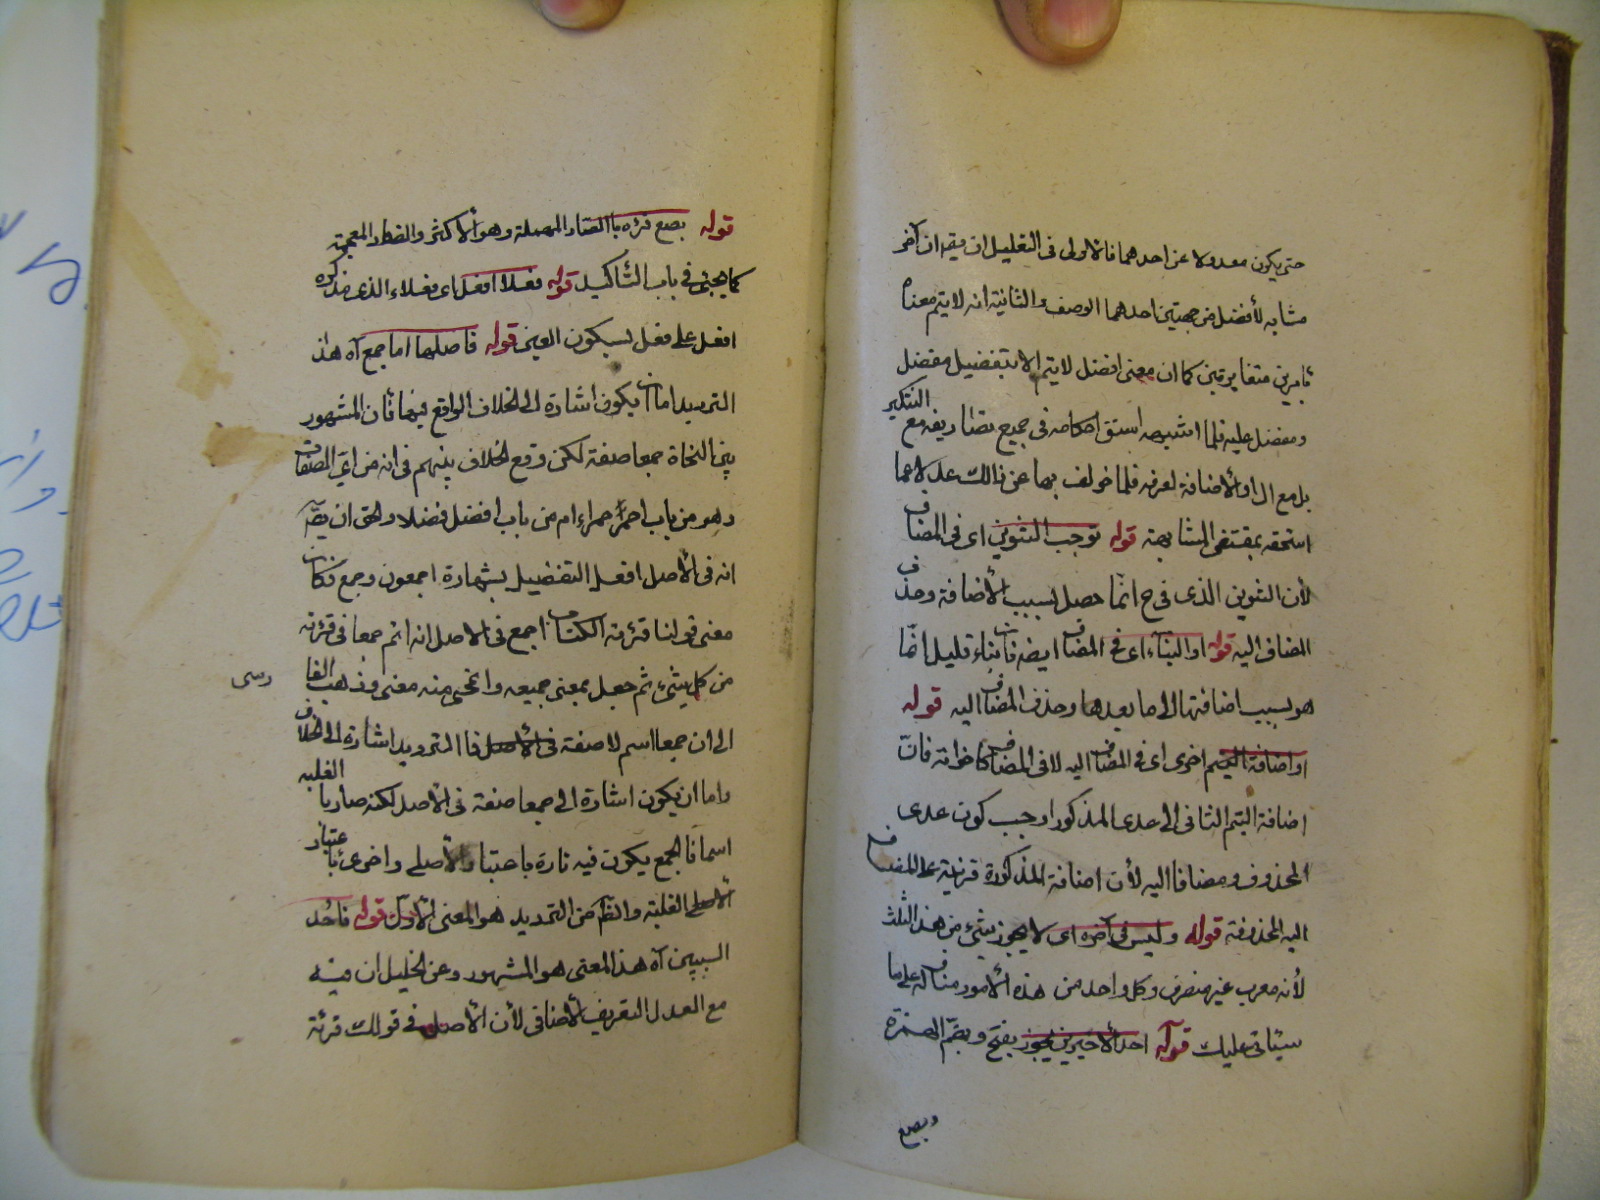 حتى يكون معدولا عن احدهما فالاولى فى التعليل ان يقه ان آخر
مشابه لأفضل من جهتين احدهما الوصف والثانية انه لا يتم معناه
متغايرين كما ان معنى افضل لا يتم الا بتفضيل مفضل
ومفضل عليه فلما اشبهه استق احكامه فى جميع تصاريفه مع التنكير
بل مع ال او الأضافة لعرفه فلما خولف بها عن ذالك عدلا عما
استحقه بمقتضى المشابهة قوله توجب التنوين اى فى المضاف
لأن التنوين الذى فى ح انما حصل بسبب الأضافة وحذف
المضاف اليه قوله او البناء اى فى المضاف ايضه فان بناء قليل انما
هو بسبب اضافتها الى ما بعدها وحذف المضاف اليه قوله
او اضافة اخرى اى فى المضاف اليه لا فى المضاف كاخواته فان
اضافة التيم الثانى الى عدى المذكور اوجب كون عدى
المحذوف ومضافا اليه لأن اضافة المذكورة قرينة على المضاف
اليه المحذوفة قوله وليس فى آخره اى لا يجوز شىء من هذه الثلث
لأنه معرب غير منصرف وكل واحد من هذه الأمور مناف له على ما
سيتلى عليك قوله احد الأخيرين يجوز بفتح وبضم الهمزة
وبصع
قوله بصع قرءه باالصاد المهملة وهو الأكثر والضاد المعجمة
كما يجئ فى باب التأكيد قوله فعلا افعل اى فعلاء الذى مذكره
افعل على فعل بسكون العين قوله فاصلها اما جمع آه هذا
الترديد اما ان يكون اشارة الى الخلاف الواقع فيها فأن المشهور
بين النحاة جمعا صفة لكن وقع الخلاف بينهم فى انه من اى الصفات
وهو من باب احمر حمراء ام من باب افضل فضلا والحق ان يقه
انه فى الأصل افعل التفضيل بشهادة اجمعون وجمع فكان
معنى قولنا قرءت الكتاب اجمع فى الاصل انه اتم جمعا فى قرءته
من كل شىء ثم جعل بمعنى جميعه وانمحى منه معنى وذهب الفا
رسى
الى ان جمعا اسم لا صفة فى الأصل فا الترديد اشارة الى الخلاف
واما ان يكون اشارة الى جمعا صفة فى الأصل لكنه صار با الغلبه
اسما فا لجمع يكون فيه تارة باعتبار الأصلى واخرى با عتبار
الأصلى الغلبة والظم من الترديد هو المعنى الأول قوله فاحد
السببين آه هذا المعنى هو المشهور وعن الخليل ان فيه
مع العدل التعريف الأضافى لأن الأصل فى قولك قرئة